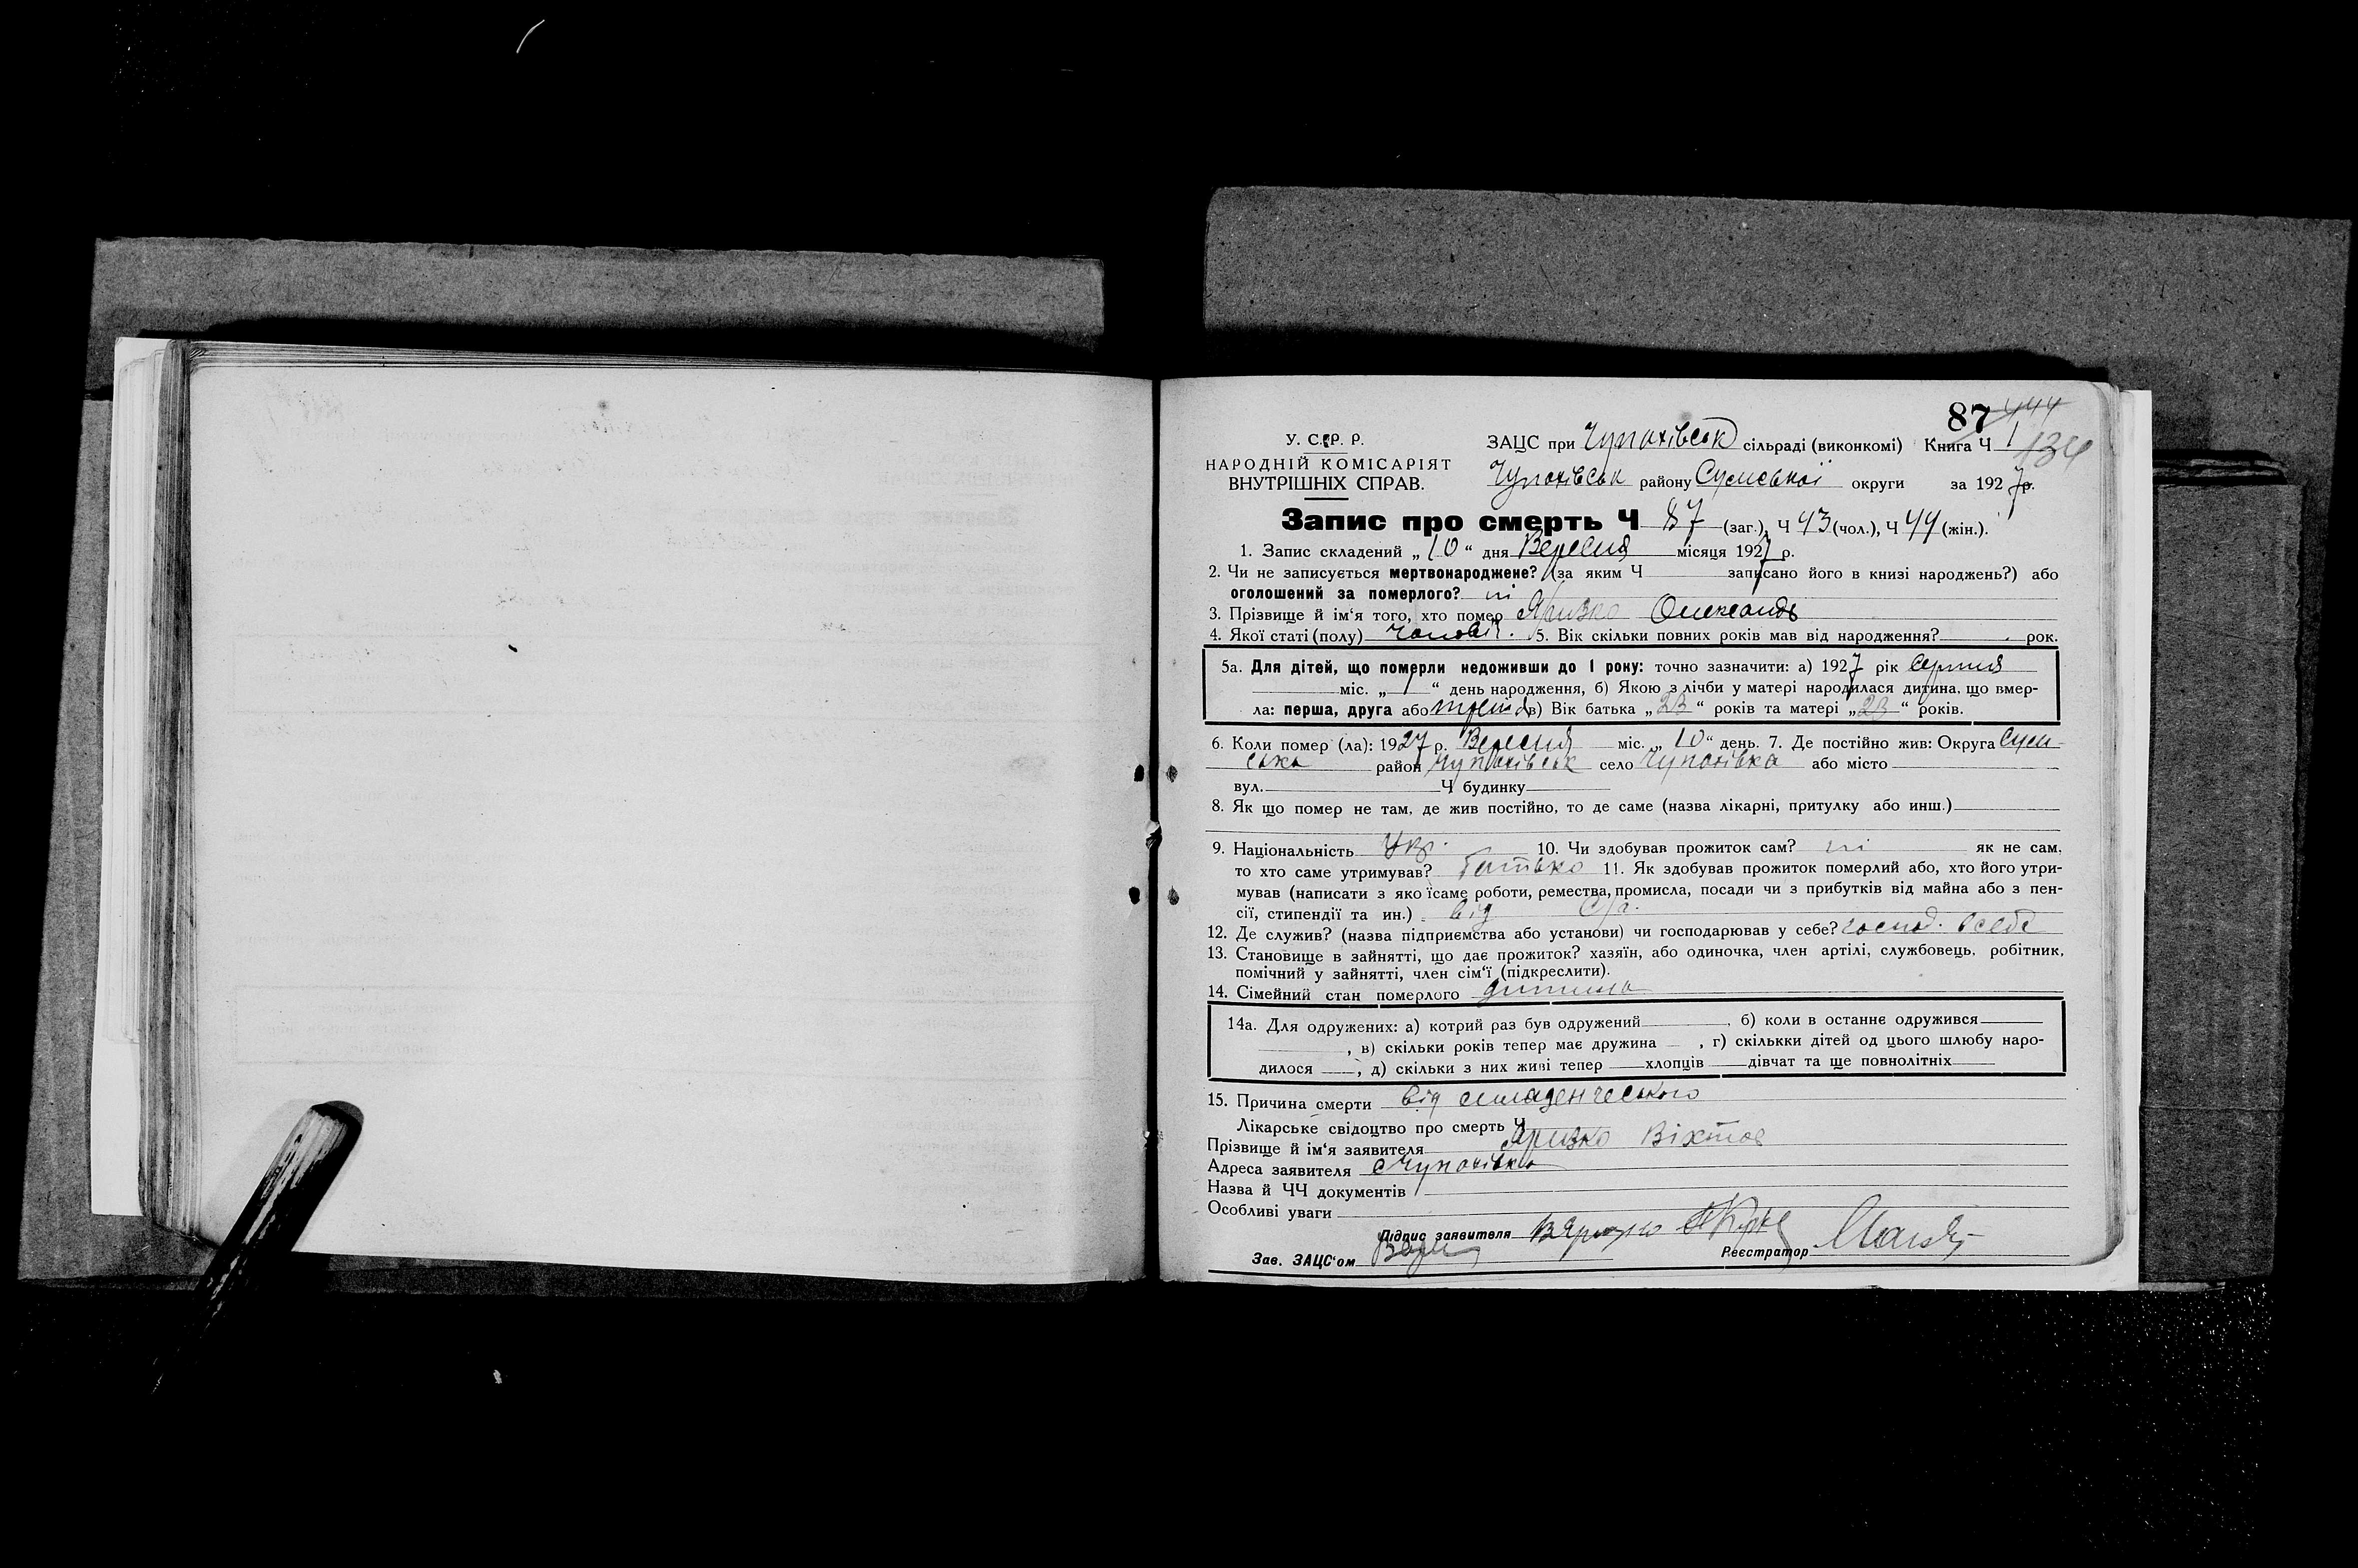 87 444
У. С. Р. Р. ЗАЦС при Чупахівськ сільраді (виконкомі) Книга Ч 1 134
НАРОДНІЙ КОМІСАРІЯТ
ВНУТРІШНІХ СПРАВ. Чупахівськ району Сумської округи за 1927 р.
Запис про смерть Ч 87 (заг.), Ч 43 (чол.), Ч 44 (жін.).
1. Запис складений „ 10 “ дня Вересня місяця 1927 р.
2. Чи не записується мертвонароджене? (за яким Ч записано його в книзі народжень?) або
оголошений за померлого? ні
3. Прізвище й ім‘я того, хто помер Яризко Олександ
4. Якої статі (полу) чоловіч. 5. Вік скільки повних років мав від народження? рок.
5а. Для дітей, що померли недоживши до 1 року: точно зазначити: а) 1927 рік Серпня
міс. „ 1 “ день народження, б) Якою з лічби у матері народилася дитина, що вмер-
ла: перша, друга або третя в) Вік батька „ 23 “ років та матері „ 23 “ років.
6. Коли помер (ла): 1927 р. Вересня міс. „ 10 “ день. 7. Де постійно жив: Округа Сум-
ська район Чупахівськ село Чупахівка або місто
вул. Ч будинку
8. Як що помер не там, де жив постійно, то де саме (назва лікарні, притулку або инш.)
9. Національність Укр. 10. Чи здобував прожиток сам? ні як не сам,
то хто саме утримував? батько 11. Як здобував прожиток померлий або, хто його утри-
мував (написати з яко їсаме роботи, ремества, промисла, посади чи з прибутків від майна або з пен-
сії, стипендії та ин.) від с/г.
12. Де служив? (назва підприємства або установи) чи господарював у себе? господ. в себе
13. Становище в зайнятті, що дає прожиток? хазяїн, або одиночка, член артілі, службовець, робітник,
помічний у зайнятті, член сім‘ї (підкреслити).
14. Сімейний стан померлого дитина
14а. Для одружених: а) котрий раз був одружений , б) коли в останнє одружився
, в) скільки років тепер має дружина , г) скількки дітей од цього шлюбу наро-
дилося , д) скільки з них живі тепер хлопців дівчат та ще повнолітніх
15. Причина смерти від младенческого
Лікарське свідоцтво про смерть Ч
Прізвище й ім‘я заявителя Яризко Віктор
Адреса заявителя с Чупахівка
Назва й ЧЧ документів
Особливі уваги
Підпис заявителя
Зав. ЗАЦС‘ом Реєстратор